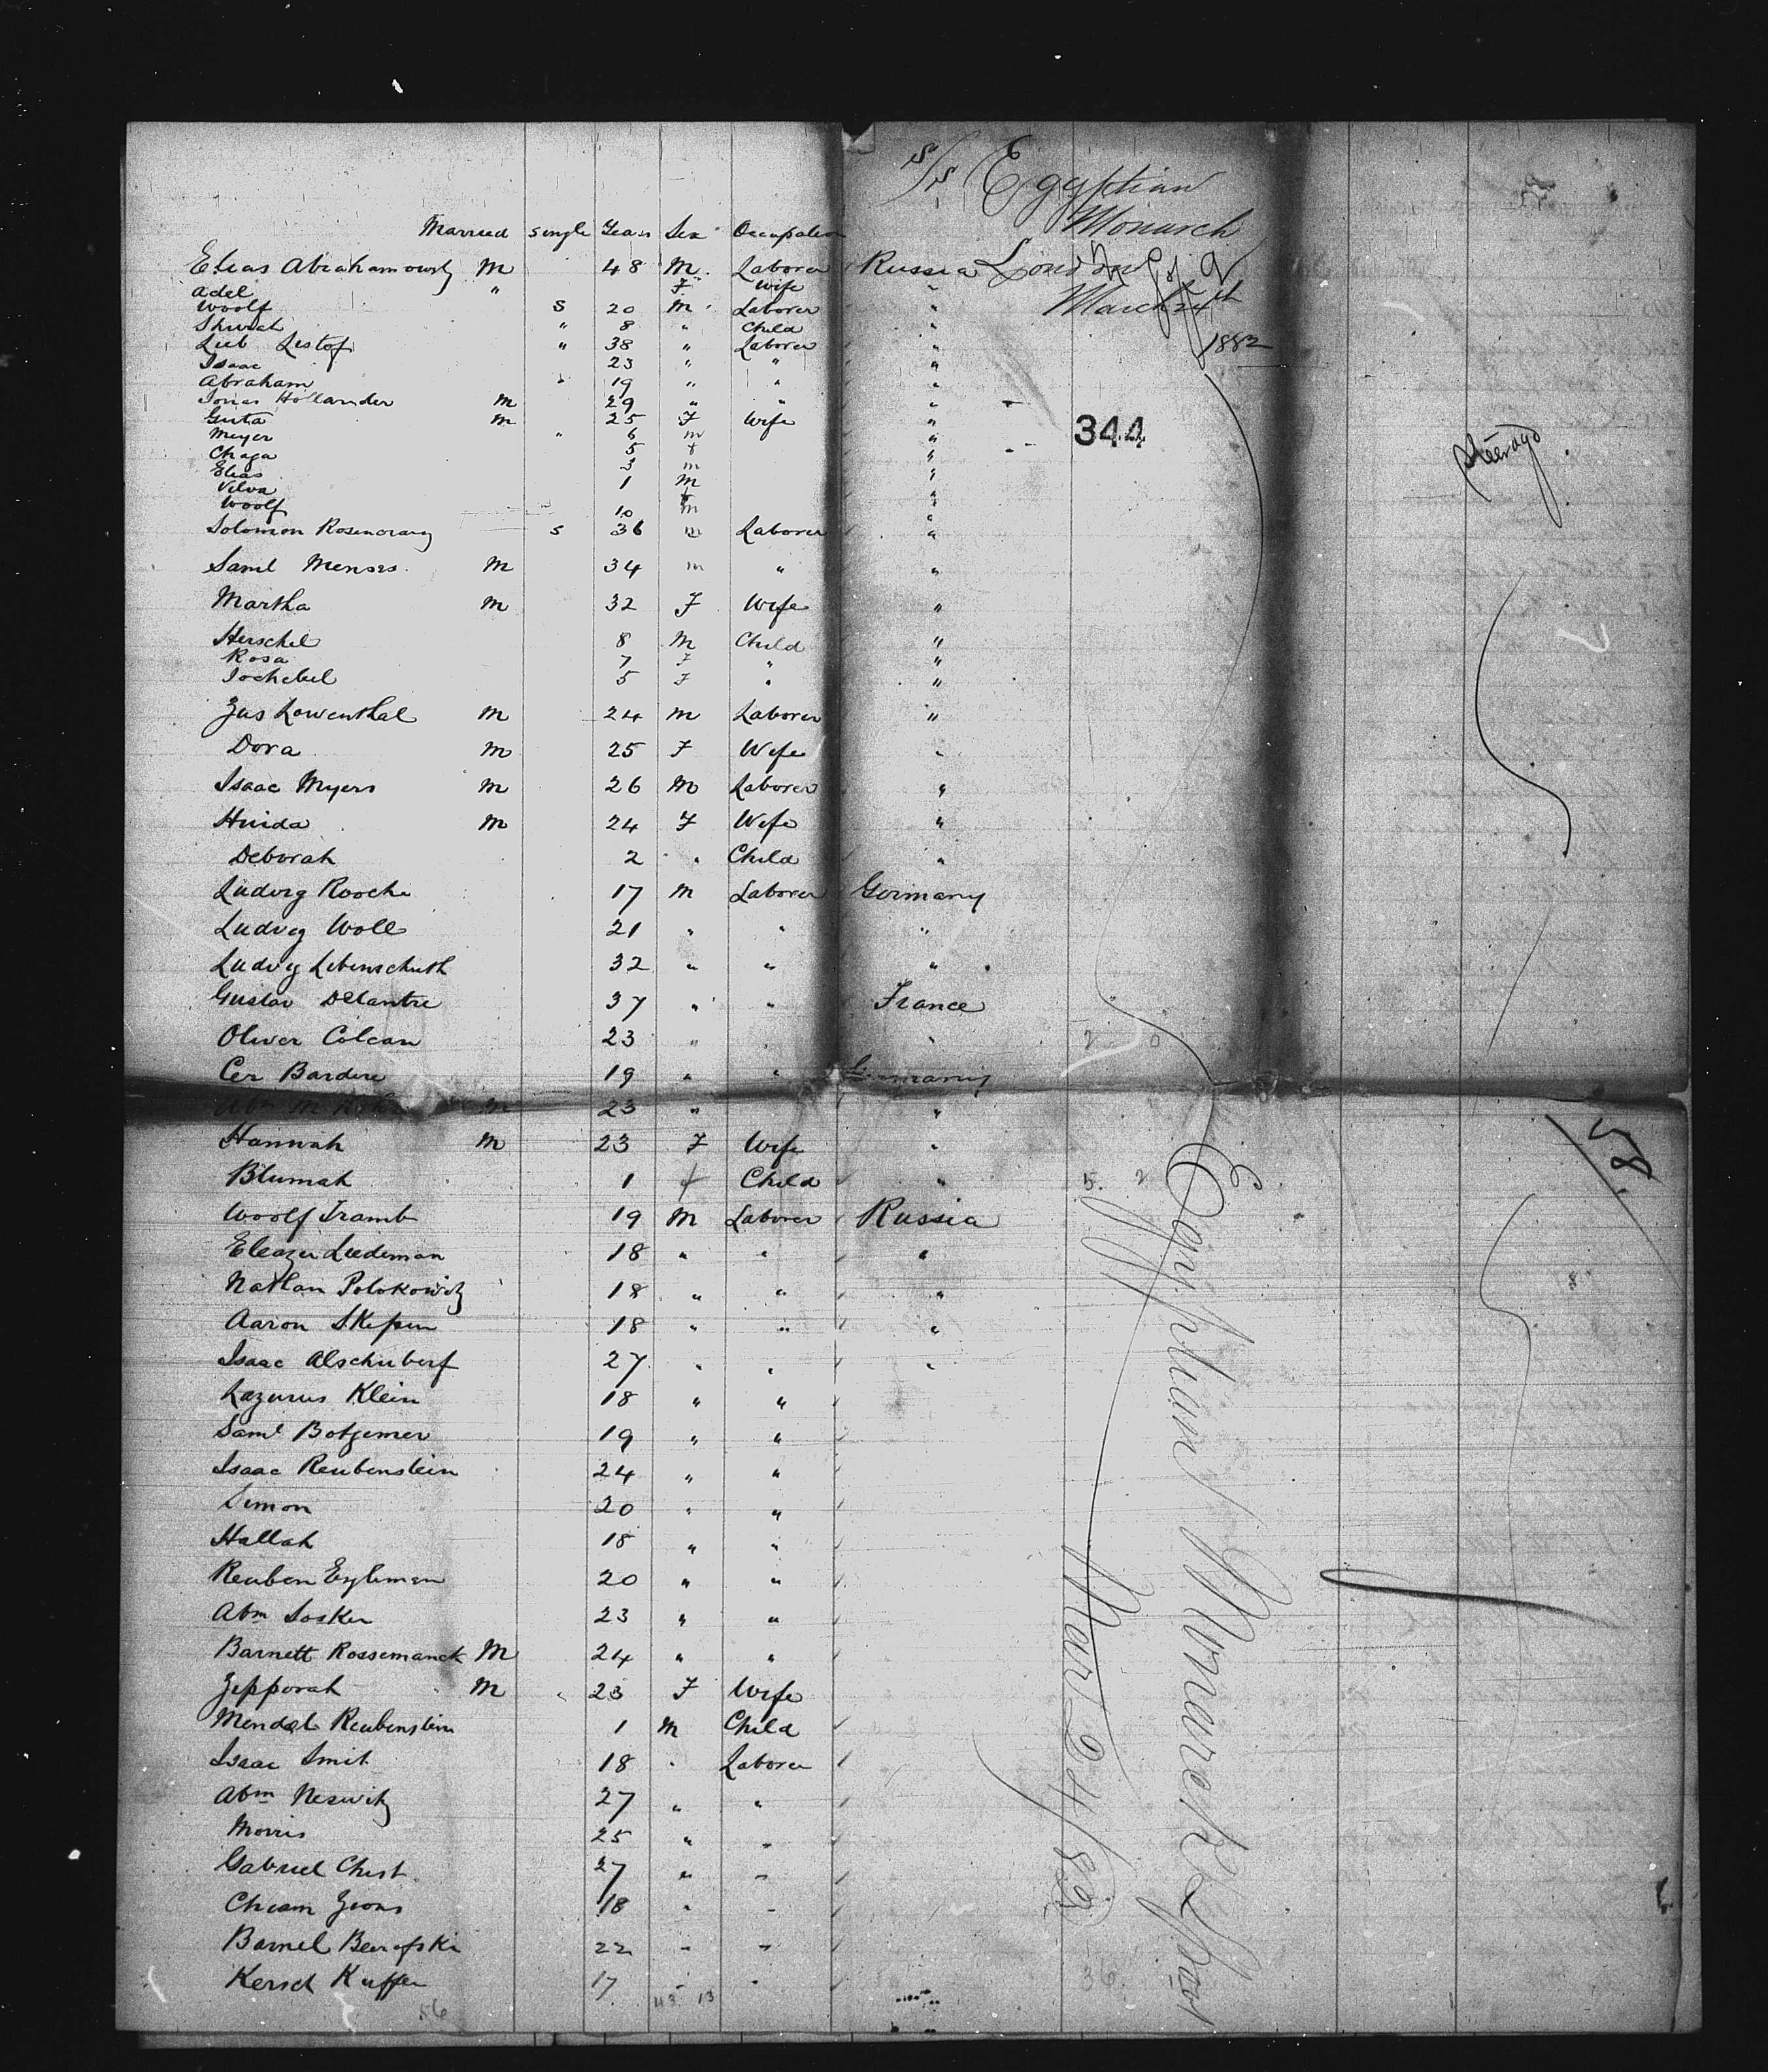 S/S Egyptian
Monarch
London
March 24th
1882
344
Steerage
58
Married Single Years Sex Occupation
Elias Abrahamowitz M 48 M. Laborer Russia
Adel " F Wife "
Woolf S 20 M Laborer "
" 8 " Child "
Lieb Listof " 38 " Laborer "
Isaac 23 " " "
Abraham 19 " " "
Jonas Hollander M 29 " " "
Gusta M 25 F Wife "
Meyer " 6 M "
Chaga 5 f "
Elias 3 m "
Velva 1 M "
Woolf 10 m "
Solomon S 36 m Laborer "
Saml Menses. M 34 m " "
Martha M 32 F Wife "
Herschel 8 M Child "
Rosa 7 F " "
Jochebel 5 F " "
Zus Lowenthal M 24 M Laborer "
Dora M 25 F Wife "
Isaac Myers M 26 M Laborer "
Hinda M 24 F Wife "
Deborah 2 " Child "
Ludvig Rooche 17 M Laborer Germany
Ludvig Woll 21 " " "
Ludvig Lebenschuth 32 " " "
Gustav Delantre 37 " " France
Oliver Colcan 23 " " "
Cer Bardere 19 " " Germany
Abm M 23 " "
Hannah M 23 F Wife "
Blumah 1 f Child "
Woolf Tramb 19 M Laborer Russia
Eleazer Liedeman 18 " " "
Nathan Polokowitz 18 " " "
Aaron Skepen 18 " " "
Isaac Alschuberf 27 " " "
Lazurus Klein 18 " "
Saml Botzemer 19 " "
Isaac Reubenstein 24 " "
Simon 20 " "
Hallah 18 " "
Reuben Eyleman 20 " "
Abm Sosker 23 " "
Barnett Rossemanck M 24 " "
Zipporah M 23 F Wife
Mendel Reubenstein 1 M Child
Isaac Smit 18 " Laborer
Abm Neswitz 27 " "
Morris 25 " "
Gabriel Chest 27 " "
Chiam Zions 18 " "
Barnel Berofski 22 " "
Kersch Kuffer 17 " "
56 43 13
36
Egyptian Monarch
Mar 24/82